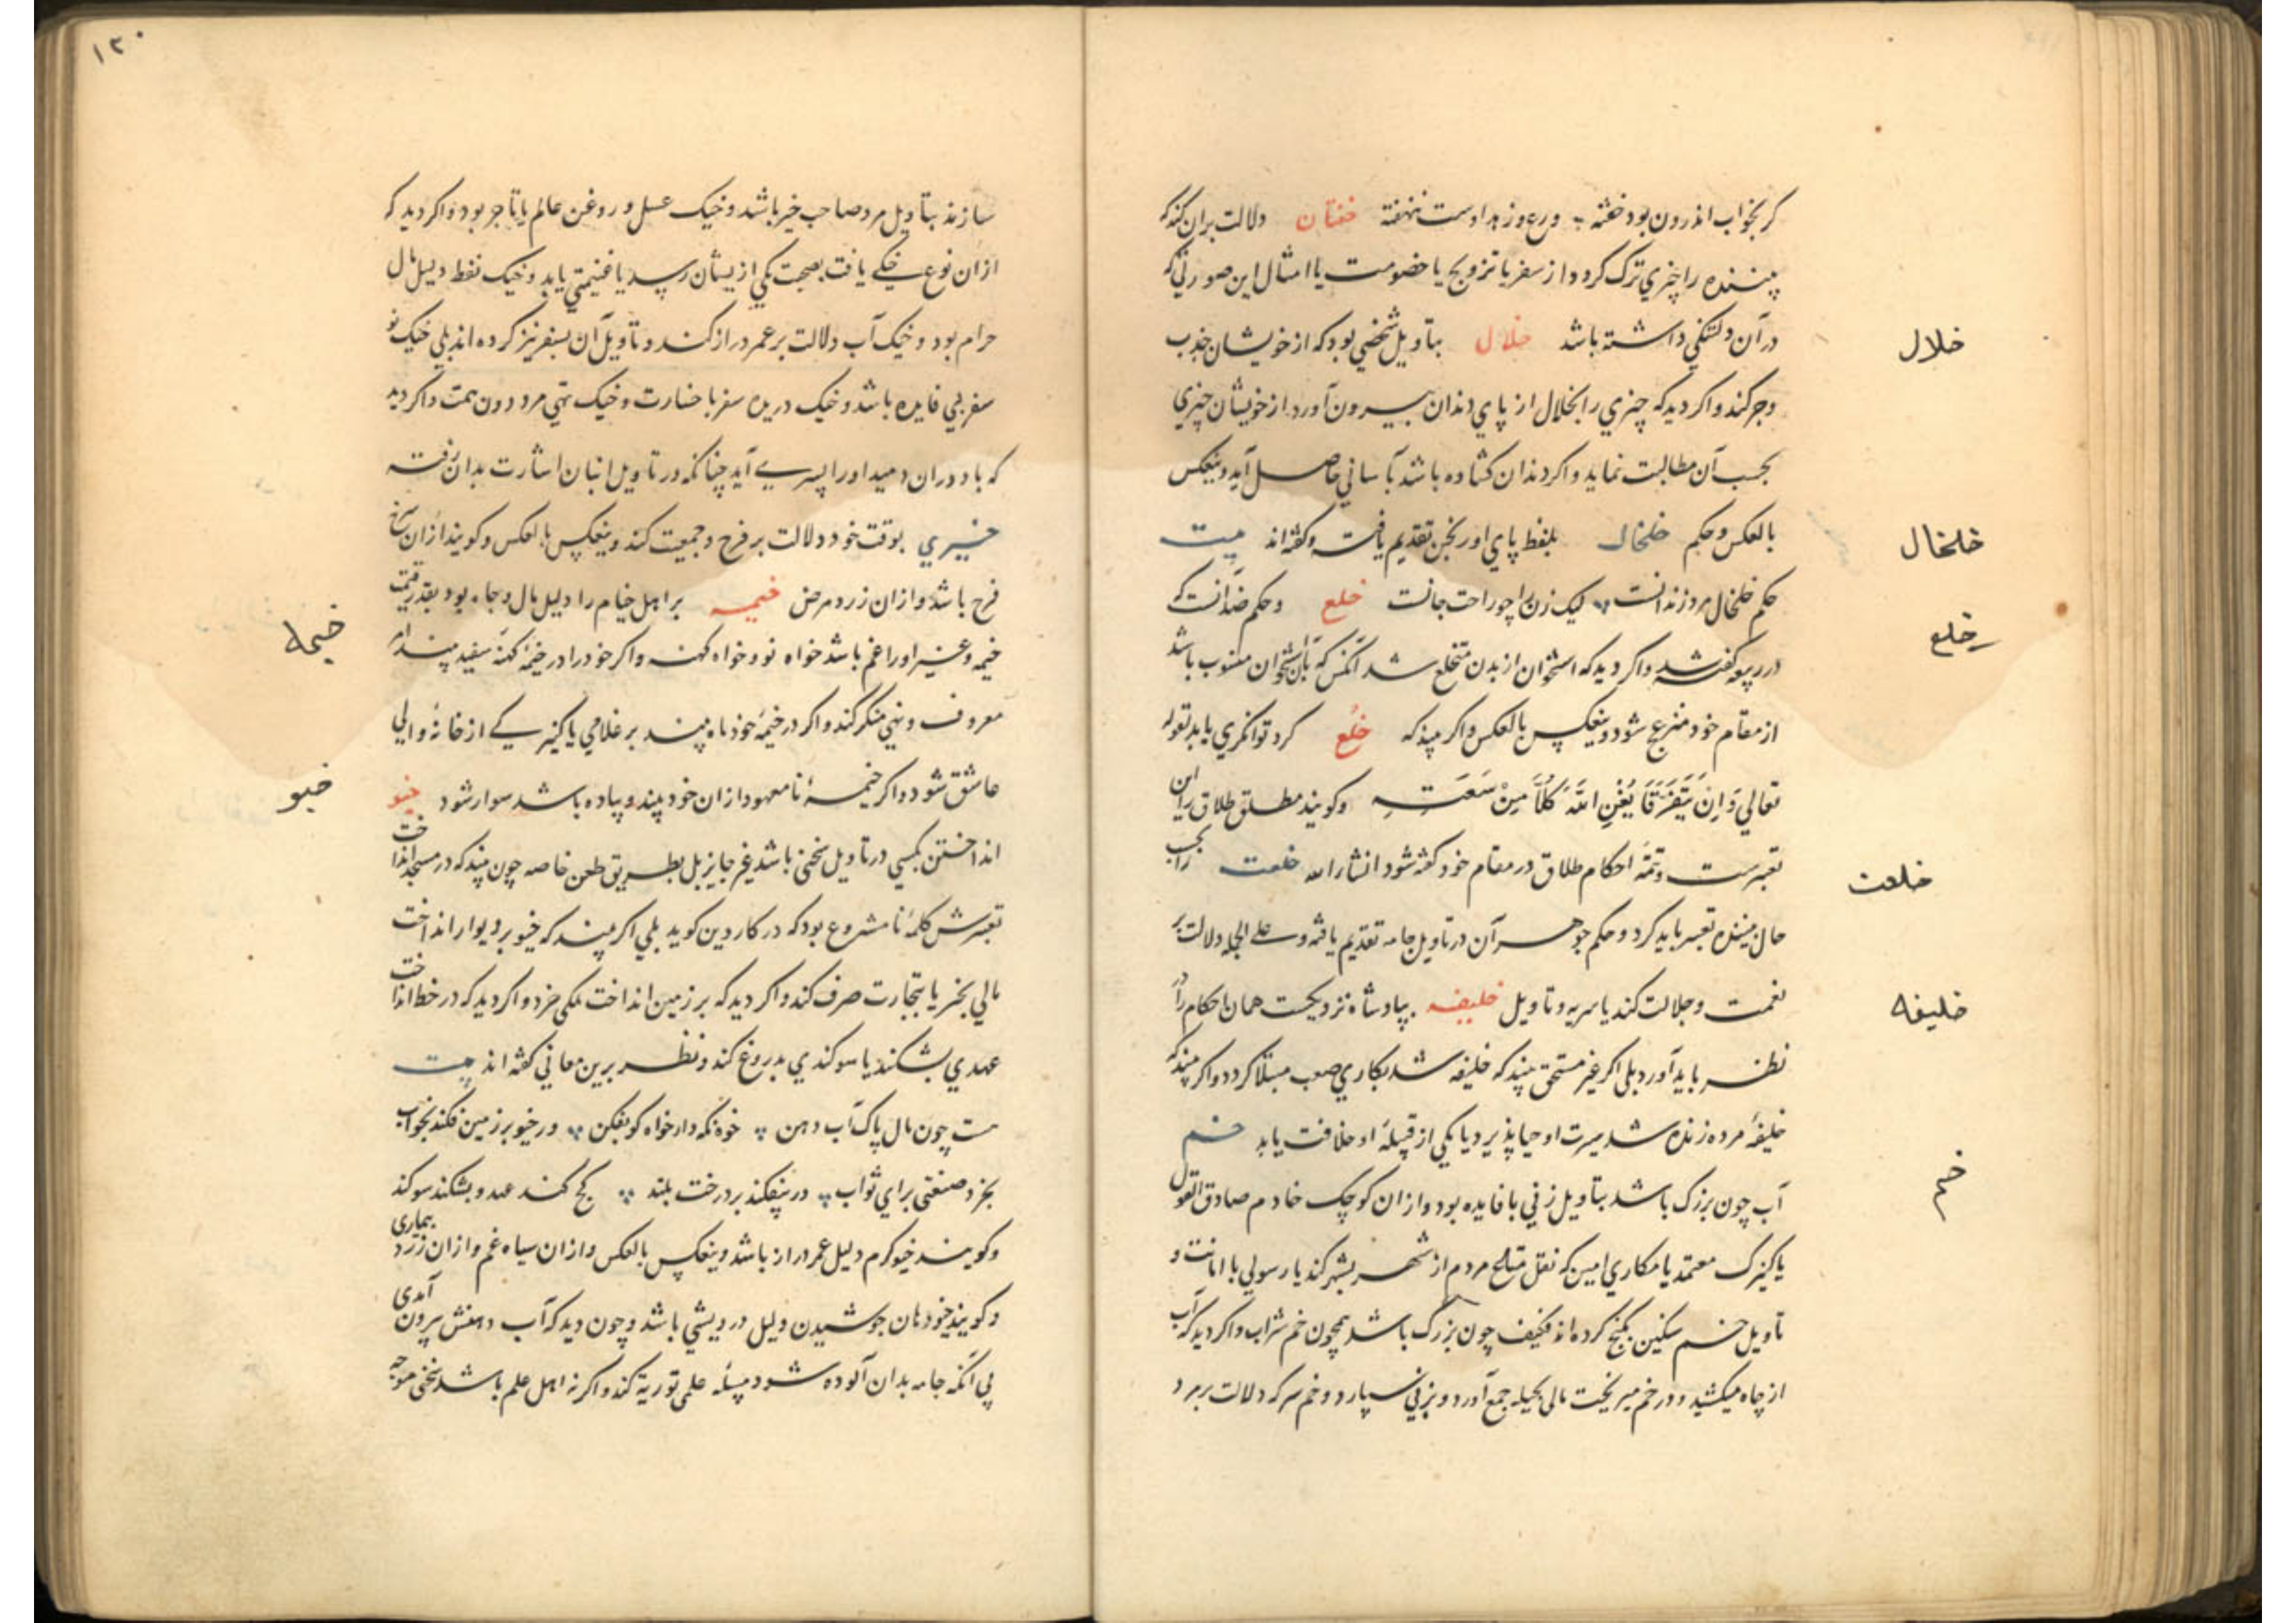 کر بخواب اندرون بود خفته ؞ ورع و زهد اوست نهفته خفتان دلالت بران کند که
بیننده را چیزي ترک کردد از سفر یا تزویج یا خصومت یا امثال این صورتی که
در آن دلتنکي داشته باشد خلال بتاویل شخصي بود که از خویشان جذب
وجر کند و اکر دید که چیزي را بخلال از پاي دندان بیرون آورد از خویشان چیزي
بحسب آن مطالبت نماید و اکر دندان کشاده باشد بآساني حاصل آید و بنعکس
بالعکس و حکم خلخال بلفظ پاي اورنجن تقدیم یافت و کفته اند بیت
حکم خلخال مرد زندانست ؞ لیک زن را چو راحت جانست خلع و حکم ضد آنست که
در ربیعه کفته شد و اکر دید که استخوان از بدن منخلع شد آنکس که بآن استخوان منسوب باشد
از مقام خود منزعج شود و بنعکس بالعکس و اکر بیند که خُلع کرد توانکري یابد لقوله
تعالي وَاِنْ یَتَفَرَّقَا یُغْنِ اللهُ کُلًّا مِنْ سَعَتِهِ و کویند مطلق طلاق را این
تعبیرست و تتمّه احکام طلاق در مقام خود کفته شود انشاءالله خلعت را بحسب
حال بیننده تعبیر باید کرد و حکم جوهر آن در تاویل جامه تقدیم یافته و علی الجمله دلالت بر
نعمت و جلالت کند یا سریه و تاویل خلیفه بپادشاه نزدیکست همان احکام را
نظر باید آورد بلی اکر غیر مستحق بیند که خلیفه شد بکاري صعب مبتلا کردد و اکر بیند که
خلیفهٔ مرده زنده شد سیرت او احیا پذیرد یا یکي از قبیلهٔ او خلافت یابد خم
آب چون بزرک باشد بتاویل زني با فایده بود و از ان کوچک خادم صادق القول
یا کنیزک معتمد یا مکاري امین که نقل متاع مردم از شهر بشهر کند یا رسولي با امانت و
تاویل خم سکین بکنج کرده اند فکیف چون بزرک باشد همچون خم شراب و اکر دید که آب
از چاه میکشید و در خم میریخت مالی بحیله جمع آورد و بزني سپارد و خم سرکه دلالت بر مرد
خلال
خلخال
خلع
خلعت
خلیفه
خم
١٢٠
سازند بتاویل مرد صاحب خیر باشد و خیک عسل و روغن عالم یا تاجر بود و اکر دید که
از ان نوع خیکے یافت بصحبت یکي از یشان رسد یا غنیمتي یابد و خیک نفط دلیل مال
حرام بود و خیک آب دلالت بر عمر دراز کند و تاویل آن بسفر نیز کرده اند بلي خیک نو
سفر بي فایده باشد و خیک دریده سفر با خسارت و خیک تهي مرد دون همت و اکر دید
که باد دران دمید او را پسرے آید چنانکه در تاویل انبان اشارت بدان رفته
خیري بوقت خود دلالت بر فرح و جمعیت کند و بنعکس بالعکس و کویند از ان سرخ
فرح باشد و از ان زرد مرض خیمه بر اهل خیام را دلیل مال و جاه بود بقدر قیمت
خیمه و غیر او را غم باشد خواه نو و خواه کهنه و اکر خود را در خیمهٔ کهنه سفید بیند امر
معروف و نهي منکر کند و اکر در خیمهٔ خود ماه بیند بر غلامي یا کنیزکے از خانهٔ والي
عاشق شود و اکر خیمهٔ نا معهود از ان خود بیند و پیاده باشد سوار شود خیو
انداختن بکسي در تاویل سخني باشد غیر جایز بل بطریق طعن خاصه چون بیند که در مسجد انداخت
تعبیرش کلمهٔ نا مشروع بود که در کار دین کوید بلي اکر بیند که خیو بر دیوار انداخت
مالي بخیر یا بتجارت صرف کند و اکر دید که بر زمین انداخت ملکی خرد و اکر دید که در خط انداخت
عهدي بشکند یا سوکندي بدروغ کند و نظر برین معاني کفته اند بیت
هست چون مال پاک آب دهن ؞ خوه نکه دار خواه کو بفکن ؞ ور خیو بر زمین فکند بخواب
بخرد صنعتی براي ثواب ؞ ور بیفکند بر درخت بلند ؞ کج کند عهد و بشکند سوکند
و کویند خیو کرم دلیل عمر دراز باشد و بنعکس بالعکس و از ان سیاه غم و از ان زرد بیماری
و کویند خیو دهان جوشیدن دلیل درویشي باشد و چون دید که آب دهنش بیرون آمدی
بي آنکه جامه بدان آلوده شود مسلهٔ علمی توریة کند و اکر نه اهل علم باشد سخنی موجه
خیمه
خیو